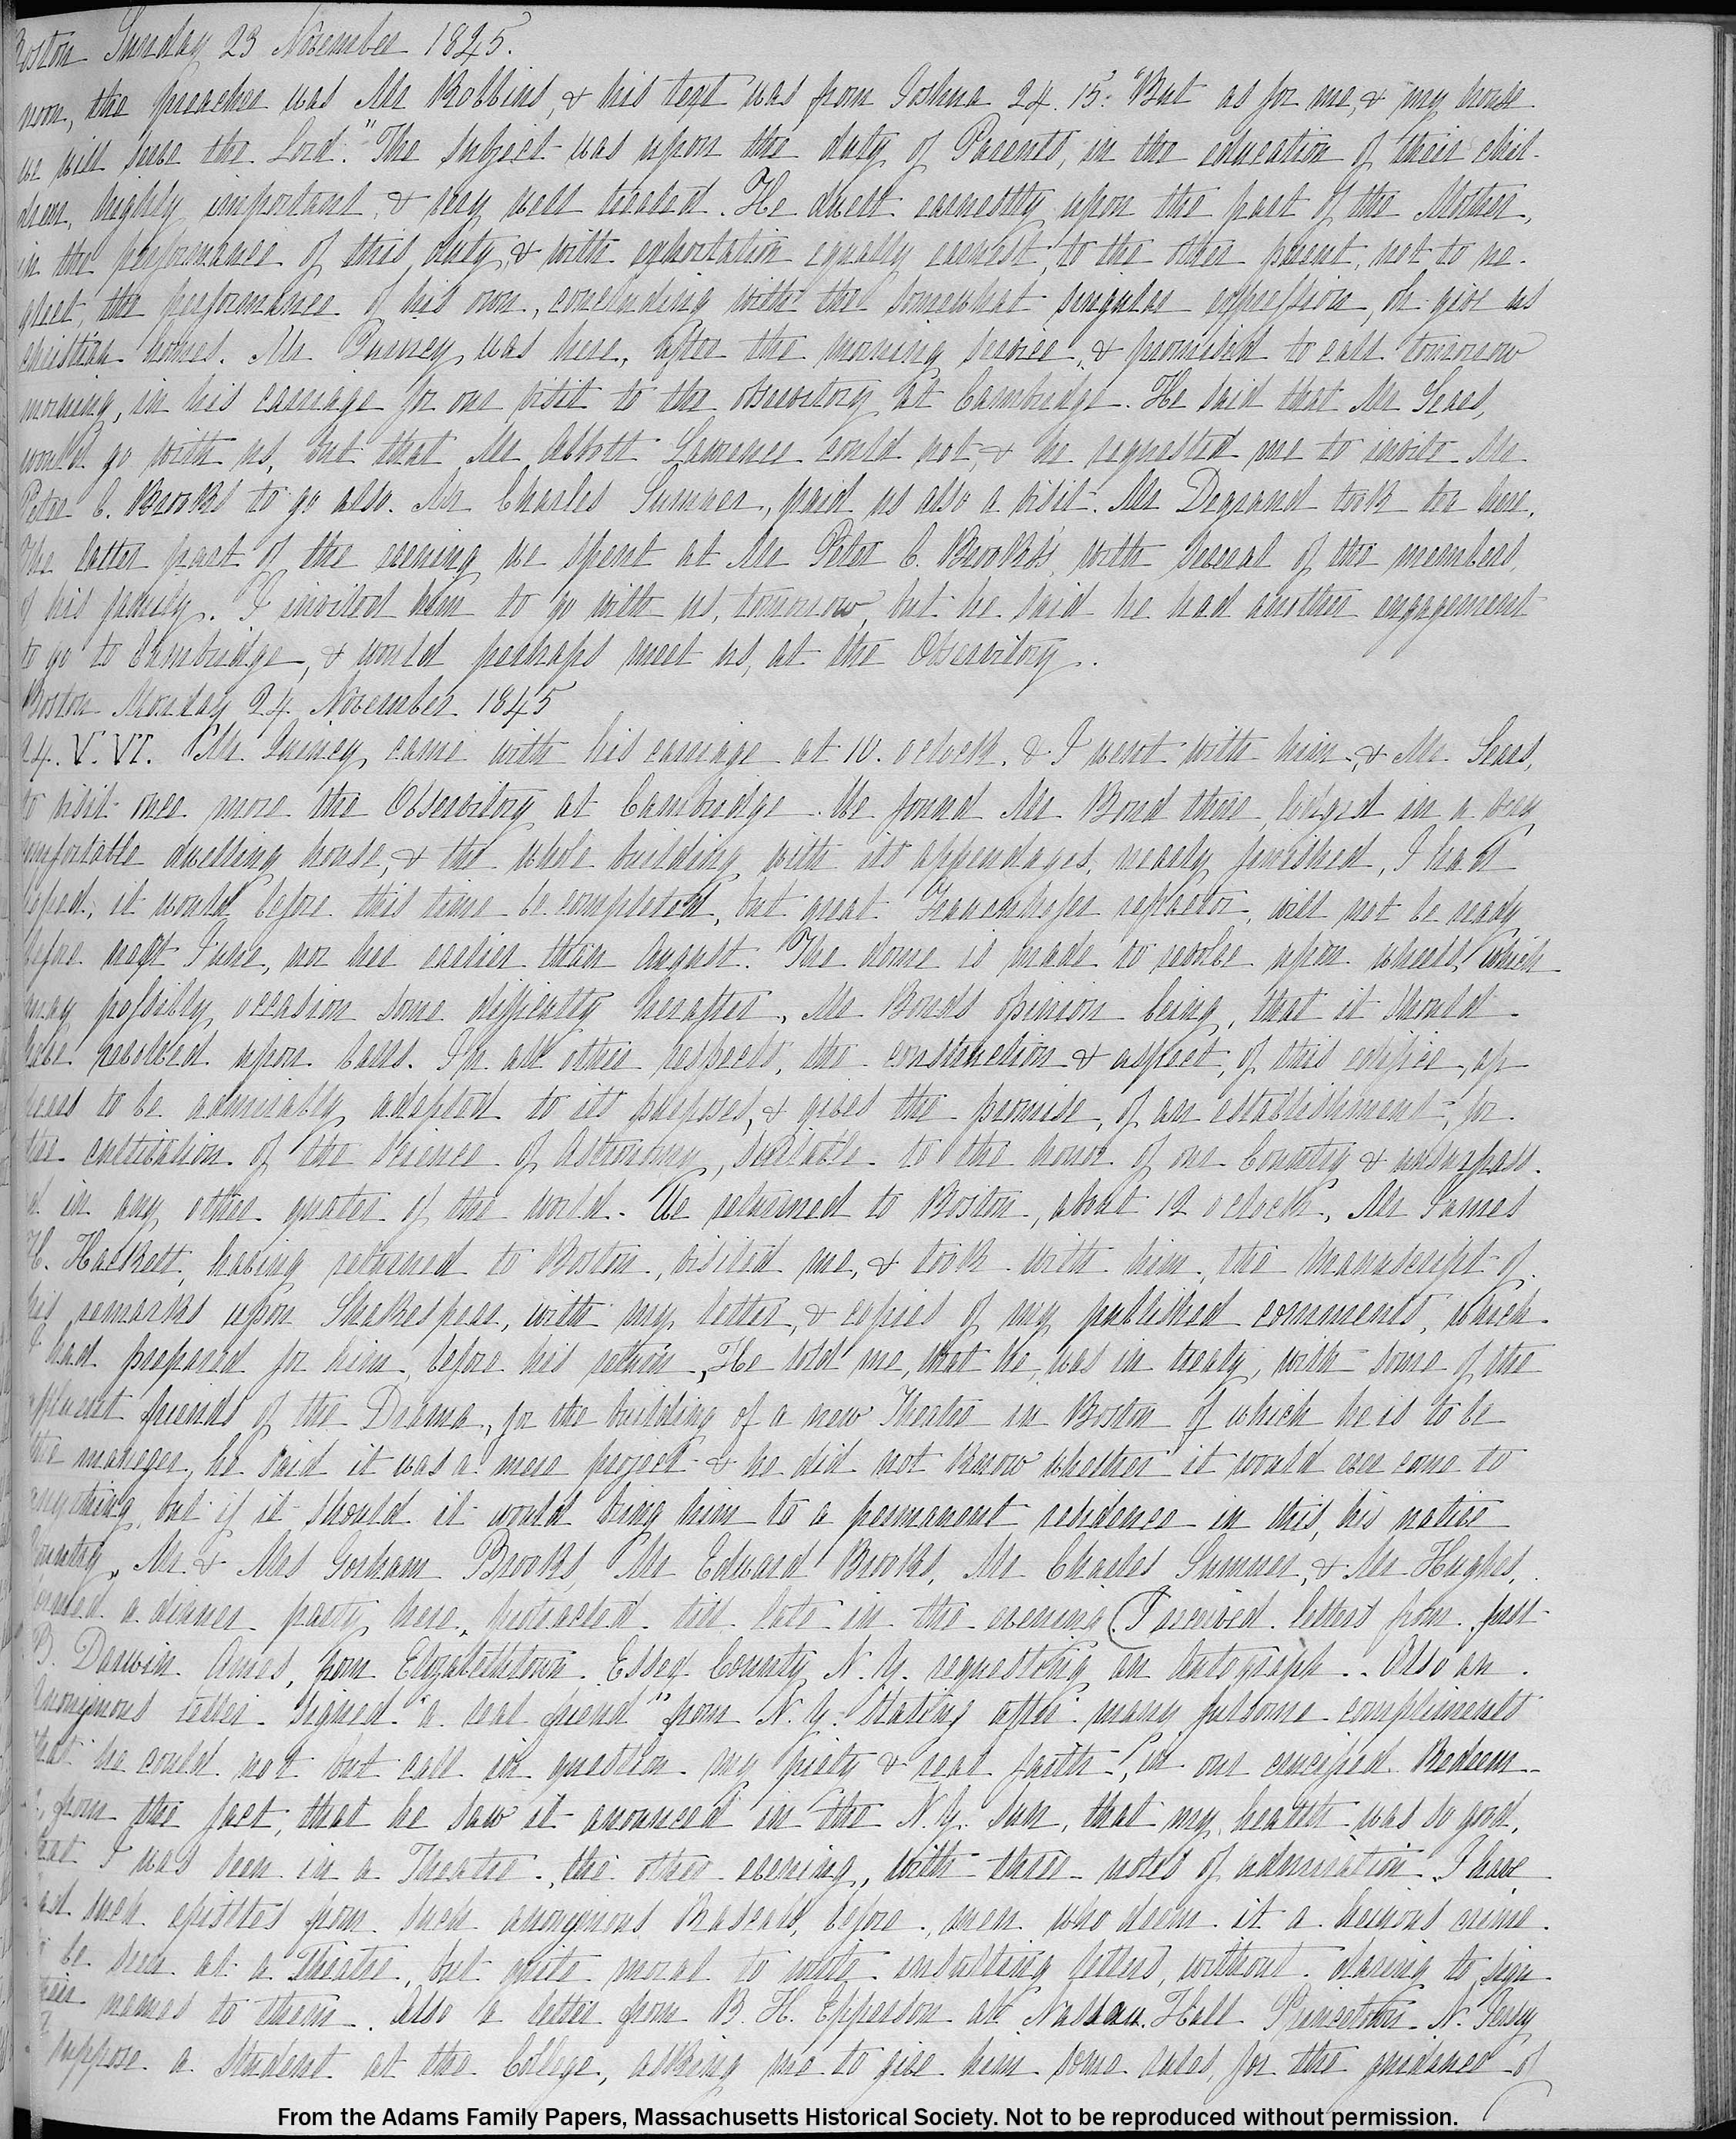 Boston Sunday 23 November 1845.
noon, the preacher was Mr Robbins, & his text was from Joshua 24. 15. "But as for me, & my house
we will serve the Lord." The subject was upon the duty of Parents, in the education of their chil-
dren, highly important, & very well treated. He dwelt earnestly upon the part of the Mother,
in the performance of this duty, & with exhortation equally earnest, to the other parent, not to ne-
glect, the performance of his own, concluding with the somewhat singular expression, oh give us
christian homes. Mr. Quincy was here, after the morning service, & promised to call tomorrow
morning, in his carriage for our visit to the observatory at Cambridge. He said that Mr Sears,
would go with us, but that Mr Abbott Lawrence could not, & he requested me to invite Mr
Peter C. Brooks to go also. Mr Charles Sumner, paid us also a visit. Mr Degrand took tea here.
The latter part of the evening we spent at Mr Peter C. Brooks's, with several of the members,
of his family. I invited him to go with us, tomorrow, but he said he had another engagement
to go to Cambridge, & would perhaps meet us, at the Observatory.
Boston Monday 24 November 1845
24. V. VI. Mr. Quincy came with his carriage at 10. oclock. & I went with him, & Mr. Sears,
to visit once more the Observatory at Cambridge. We found Mr Bond there, lodged in a very
comfortable dwelling house, & the whole building with its appendages, nearly finished, I had
hoped, it would before this time be completed, but great Frauenhofer refractor, will not be ready
before next June, nor here earlier than August. The dome is made to revolve upon wheels, which
may possibly occasion some difficulty hereafter, Mr Bonds opinion being, that it should
have revolved upon balls. In all other respects, the construction & aspect, of this edifice, ap
pears to be admirably adapted to its purposes, & gives the promise, of an establishment, for
the cultivation of the science of Astronomy, suitable to the honor of our Country & unsurpass-
ed in any other quarter of the world. We returned to Boston, about 12 oclock, Mr James
H. Hackett, having returned to Boston, visited me, & took with him, the Manuscript of
his remarks upon Shakespear, with my letter, & copies of my published comments, which
I had prepared for him, before his return, He told me, that he was in treaty, with some of the
affluent friends of the Drama, for the building of a new Theatre in Boston of which he is to be
the manager, he said it was a mere project & he did not know whether it would ever come to
anything, but if it should it would bring him to a permanent residence in this, his native
Country. Mr. & Mrs Gorham Brooks, Mr Edward Brooks, Mr Charles Sumner, & Mr Hughes,
formed a dinner party here, protracted till late in the evening. (I received letters from
B. Darwin Ames, from Elizabethtown Essex County N. Y. requesting an Autograph. Also an
Anonimous letter signed "a real friend" from N. Y. stating after many fulsome compliments
that he could not but call in question my piety & real faith, in our crucified Redeem-
er, from the fact, that he saw it anounced in the N. Y. Sun, that my health was so good,
that I was seen in a Theatre, the other evening, with three notes of admiration. I have
had such epistles from such anonymous Rascals, before, men who deem it a heinous crime
to be seen at a Theatre, but quite moral to write insulting letters, without daring to sign
their names to them. Also a letter from B. H. Epperson at Nassau Hall Princeton N. Jersey
I suppose a student at the College, asking me to give him some rules, for the guidance of
From the Adams Family Papers, Massachusetts Historical Society. Not to be reproduced without permission.